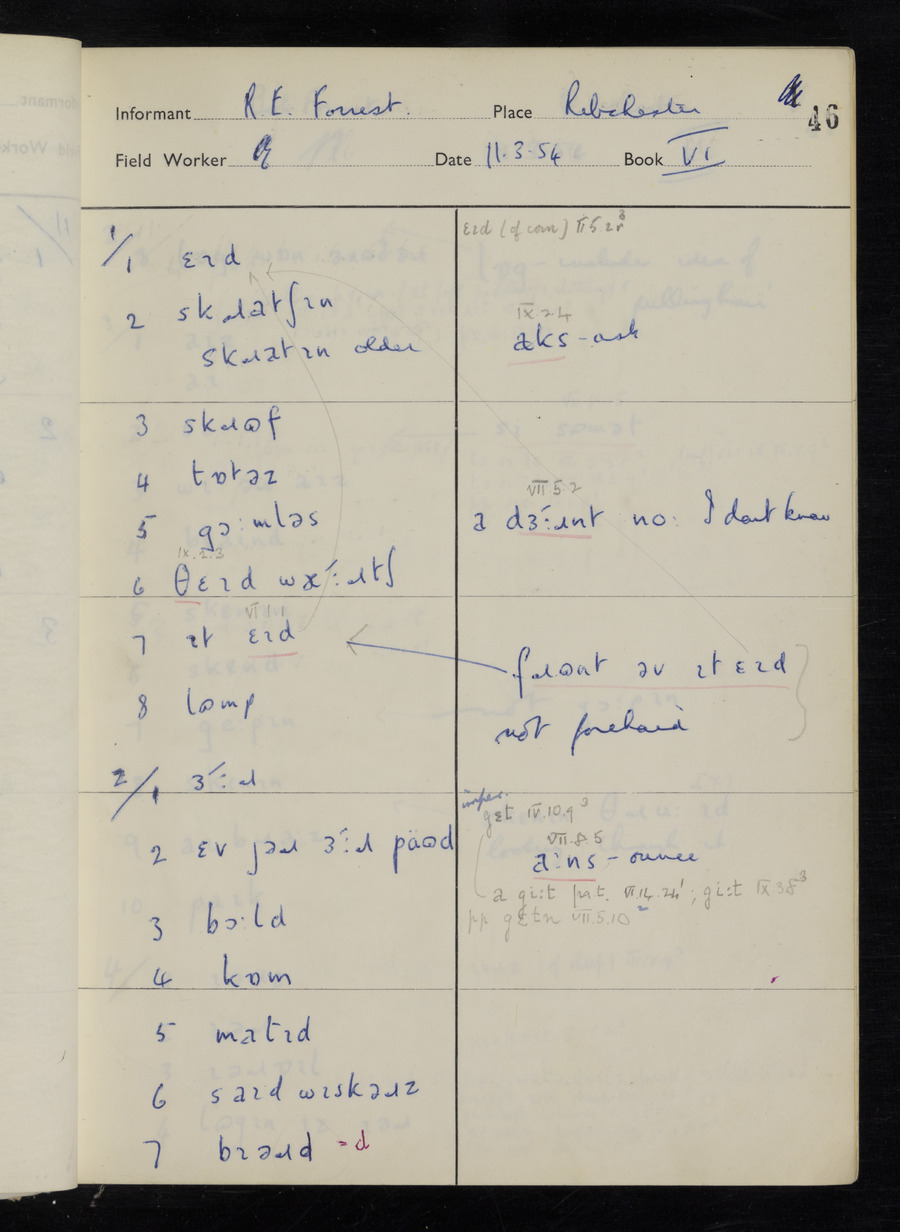 Informant R. E. Forrest. Place Ribchester 46
Field Worker Date 11.3.54 Book VI
1/1 ɛɪd
2 skɹatʃɪn
skɹatɪn older
3 skɹɒf
4 tɒtəz
5 gɔ:mləs
IX.2.3
6 θɛɪd
VI 1.1
7 ɪt ɛɪd
8 lɒmp
2/1 ɜ´:ɹ
2 ɛv jəɹ ɜ´:ɹ
3 bɔ:ld
4 kɒm
5 matɪd
6 saɪd wɪskəɹz
7 bɪəɹd = d
ɛɪd (of corn)
IX.2.4
æks - ask
VII 5.2
ə dɜ´:ɹnt no: I dont know
fɹɒnt əv ɪt ɛɪd
not forehead
imper.
get IV.10.9³
VII.8.5
a:ns - ounce
a gi:t prt. VI.14.24¹; gi:t IX.3.8³
pp gɛtn VII.5.10²